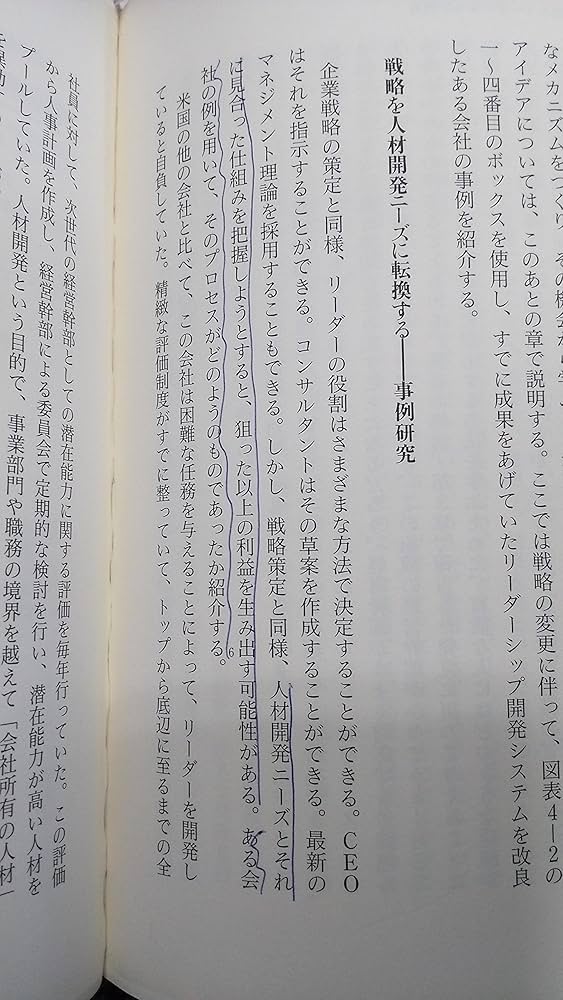 なメカニズムをつくり、その機会から学
アイデアについては、このあとの章で説明する。ここでは戦略の変更に伴って、図表4―2の
一～四番目のボックスを使用し、すでに成果をあげていたリーダーシップ開発システムを改良
したある会社の事例を紹介する。
戦略を人材開発ニーズに転換する――事例研究
企業戦略の策定と同様、リーダーの役割はさまざまな方法で決定することができる。CEO
はそれを指示することができる。コンサルタントはその草案を作成することができる。最新の
マネジメント理論を採用することもできる。しかし、戦略策定と同様、人材開発ニーズとそれ
に見合った仕組みを把握しようとすると、狙った以上の利益を生み出す可能性がある。ある会
社の例を用いて、そのプロセスがどのようのものであったか紹介する。6
米国の他の会社と比べて、この会社は困難な任務を与えることによって、リーダーを開発し
ていると自負していた。精緻な評価制度がすでに整っていて、トップから底辺に至るまでの全
社員に対して、次世代の経営幹部としての潜在能力に関する評価を毎年行っていた。この評価
から人事計画を作成し、経営幹部による委員会で定期的な検討を行い、潜在能力が高い人材を
プールしていた。人材開発という目的で、事業部門や職務の境界を越えて「会社所有の人材」